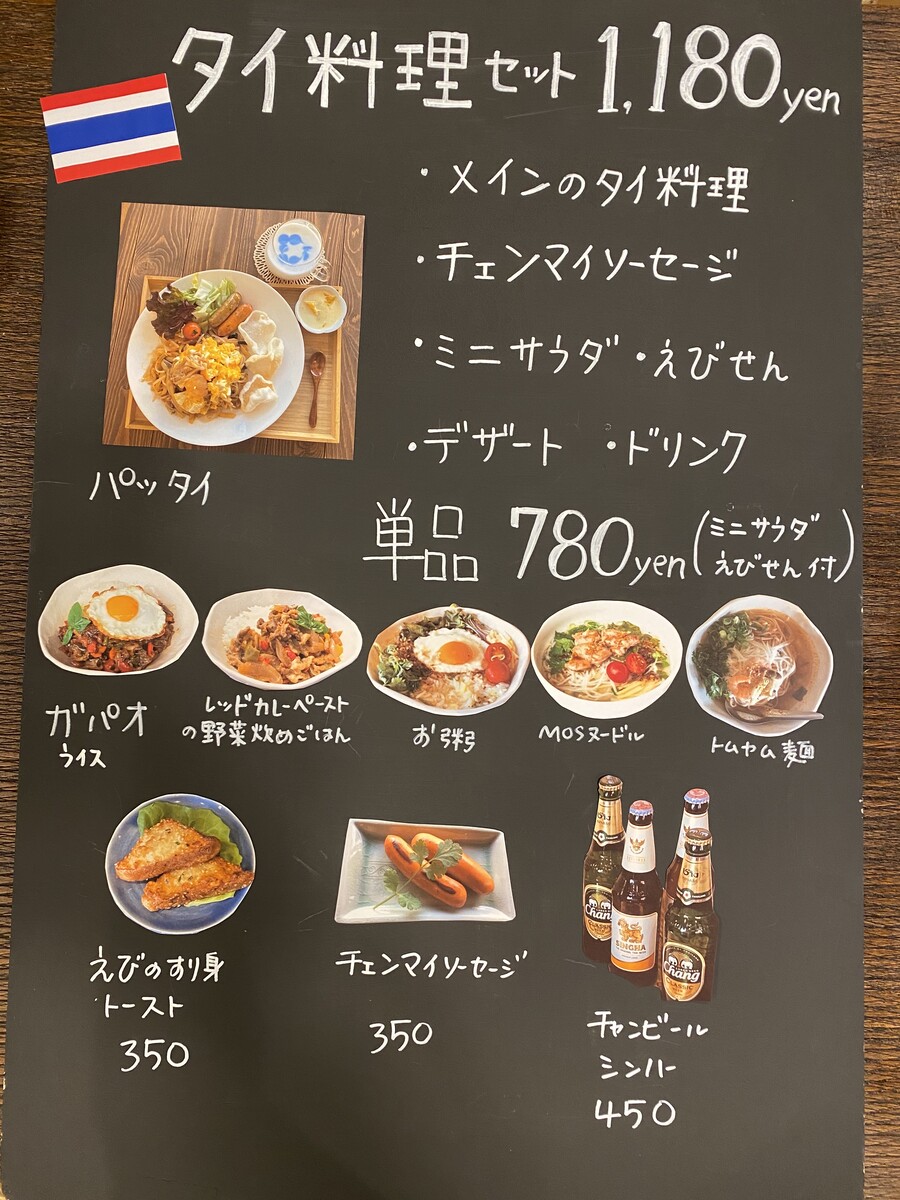 タイ料理セット 1,180yen
・メインのタイ料理
・チェンマイソーセージ
・ミニサラダ・えびせん
・デザート ・ドリンク
パッタイ
単品 780yen (ミニサラダ
えびせん付)
ガパオ
ライス
レッドカレーペースト
の野菜炊めごはん
お粥
MOSヌードル
トムヤム麺
えびのすり身
トースト
350
チェンマイソーセージ
350
Chang
SINGHA
Chang
CLASSIC
チャンビール
シンハー
450